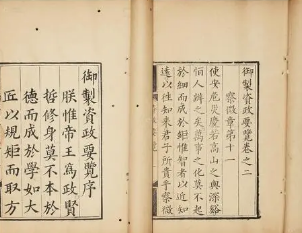 御製資政要覽卷之二
察微章第十一
使安危災慶若高山之與深谿
恒人辨之矣萬事之化莫不起
於細而成於鉅惟智者以近知
遠以往知來君子所貴乎察微
御製資政要覽序
朕惟帝王為政賢
哲修身莫不本於
德而成於學如大
匠以規矩而取方